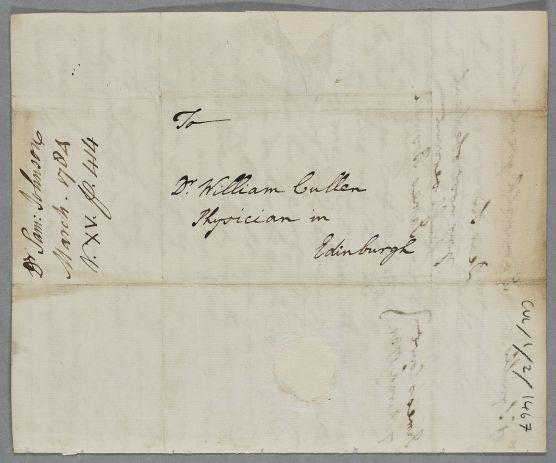 To
Dr. William Cullen
Physician in
Edinburgh
Dr Sam: Johnson
March. 1784
N. XV. p. 414
CUL/1/2/1467